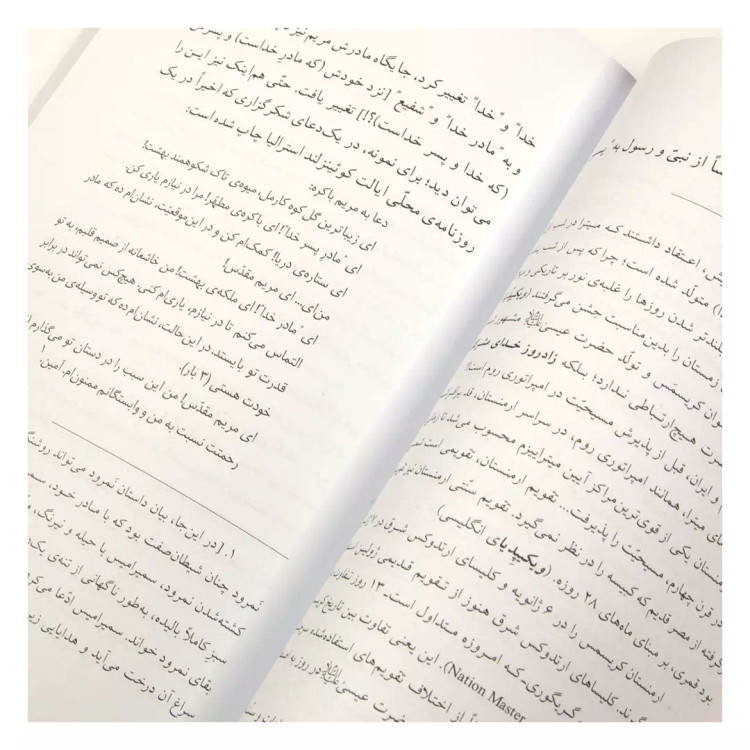 خدا" و "خدا" تغییر کرد، جایگاه مادرش مریم نیز
و به "مادر خدا" و "شفیع" [نزد خودش (که مادرِ خداست) و پسرش
(که خدا و پسر خداست)؟!] تغییر یافت، حتّی هم‌اینک نیز این را
می‌توان دید؛ برای نمونه، در یک دعای شکرگزاری که اخیراً در یک
روزنامه‌ی محلّی ایالت کوئینزلند استرالیا چاپ شده است:
دعا به مریم باکره:
ای زیباترین گل کوه کارمل، میوه‌ی تاک شکوهمند بهشت!
ای "مادرِ پسر خدا"! ای باکره‌ی مطهّر! مرا در نیازم یاری کن.
ای ستاره‌ی دریا! کمک‌ام کن و در این موقعیّت، نشان‌ام ده که مادر
من‌ای... ای مریم مقدّس!
ای "مادر خدا"! ای ملکه‌ی بهشت! من خاشعانه از صمیم قلبم، به تو
التماس می‌کنم تا در نیازم، یاری‌ام کنی. هیچ‌کس نمی‌تواند در برابر
قدرت تو بایستد. در این حالت، نشان‌ام ده که تو وسیله‌ی من به‌سوی
خودت هستی (۳ بار).
ای مریم مقدّس! من این سبب را در دستان تو می‌گذارم
رحمتت نسبت به من و وابستگانم ممنون‌ام، آمین!
۱. [در این جا، بیان داستان نَمرود می‌تواند
نَمرود چنان شیطان‌صفت بود که با مادر خود،
کشته‌شدن نمرود، سمیرامیس با حیله و نیرنگ،
سبز کاملاً بالیده، به‌طور ناگهانی از تنه‌ی
بقای نمرود خواند. سمیرامیس ادّعا می‌کرد
سراغ آن درخت می‌آید و هدایایی
از نبیّ و رسول به
اعتقاد داشتند که میترا در
متولّد شده است؛ چرا که پس از
بلندتر شدن روزها را غلبه‌ی نور بر تاریکی و
زمستان را بدین مناسبت جشن می‌گرفتند
کریسمس و تولّد حضرت عیسی مشهور
هیچ ارتباطی ندارد؛ بلکه زادروز خدای
و ایران، قبل از پذیرش مسیحیّت در امپراتوری روم است!
میترا، همانند امپراتوری روم، در سراسر ارمنستان،
یکی از قوی‌ترین مراکز آیین میتراییزم محسوب می‌شد تا
در قرن چهارم، مسیحیّت را پذیرفت... تقویم ارمنستان، تقویمی است
گرفته از مصر قدیم که کبیسه را در نظر نمی‌گیرد. تقویم سنّتی ارمنستان نیز
بود قمری، بر مبنای ماه‌های ۲۸ روزه. (ویکیپدیای انگلیسی)
ارمنستان کریسمس را در ۶ ژانویه و کلیسای ارتدوکس شرق در
کلیساهای ارتدوکس شرق هنوز از تقویم قدیمی ژولین
گریگوری-که امروزه متداول است- ۱۳ روز تفاوت
(Nation Master). این یعنی تفاوت بین تاریخ
از اختلاف تقویم‌های استفاده‌شده،
حضرت عیسی در روز